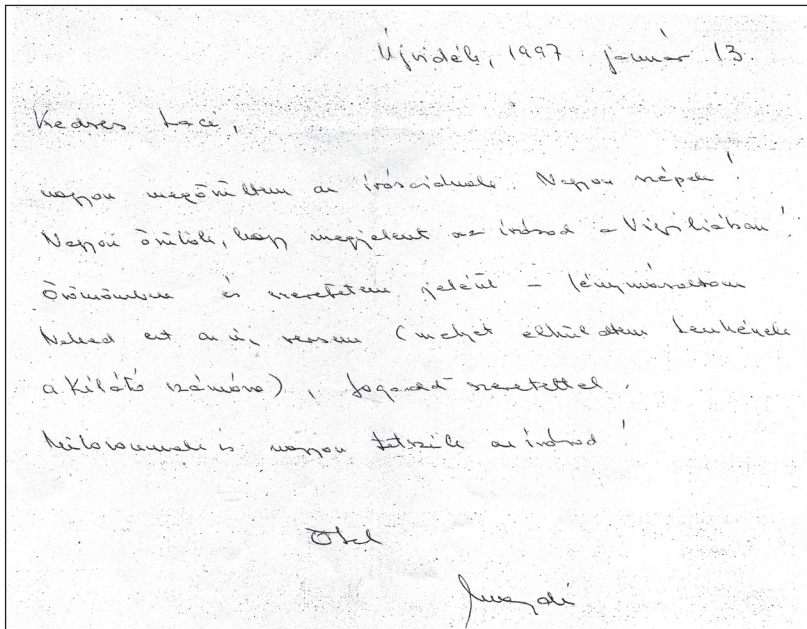 Újvidék, 1997. január 13.
Kedves Laci,
nagyon megörültem az írásaidnak. Nagyon szépek!
Nagyon örülök, hogy megjelent az írásod a Vigiliában!
Örömömben és szeretetem jeléül – fénymásoltam
Neked ezt az új versem (melyet elküldtem
a Kilátó számára), fogadd szeretettel.
is nagyon tetszik az írásod!
Ölel
Magdi